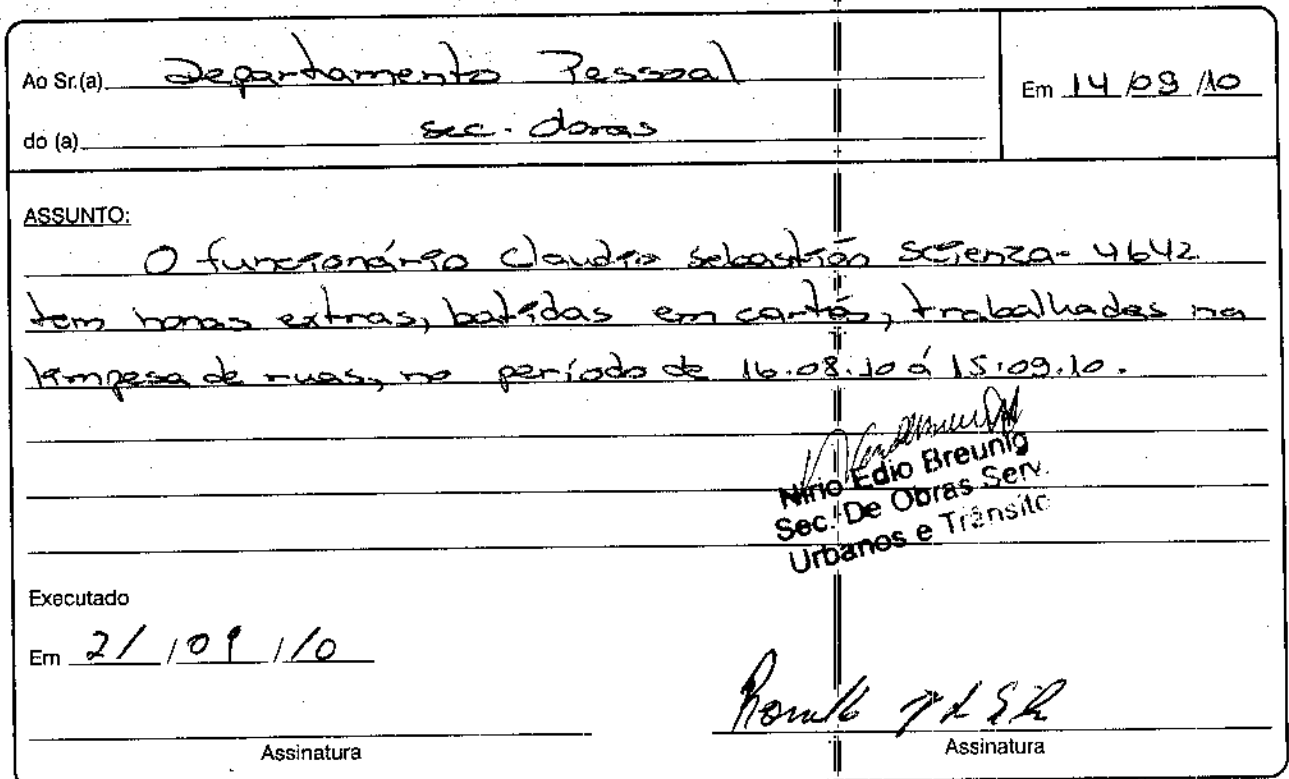 Ao Sr.(a) Departamento Pessoal
Em 14/09/10
do (a) sec. obras
ASSUNTO:
O funcionário Claudio Sebastião Scienza - 4642
tem horas extras, batidas em cartão, trabalhadas na
limpesa de ruas, no período de 16.08.10 á 15.09.10.
Nirio Edio Breunig
Sec. De Obras Serv.
Urbanos e Trânsito
Executado
Em 21/09/10
Assinatura
Assinatura